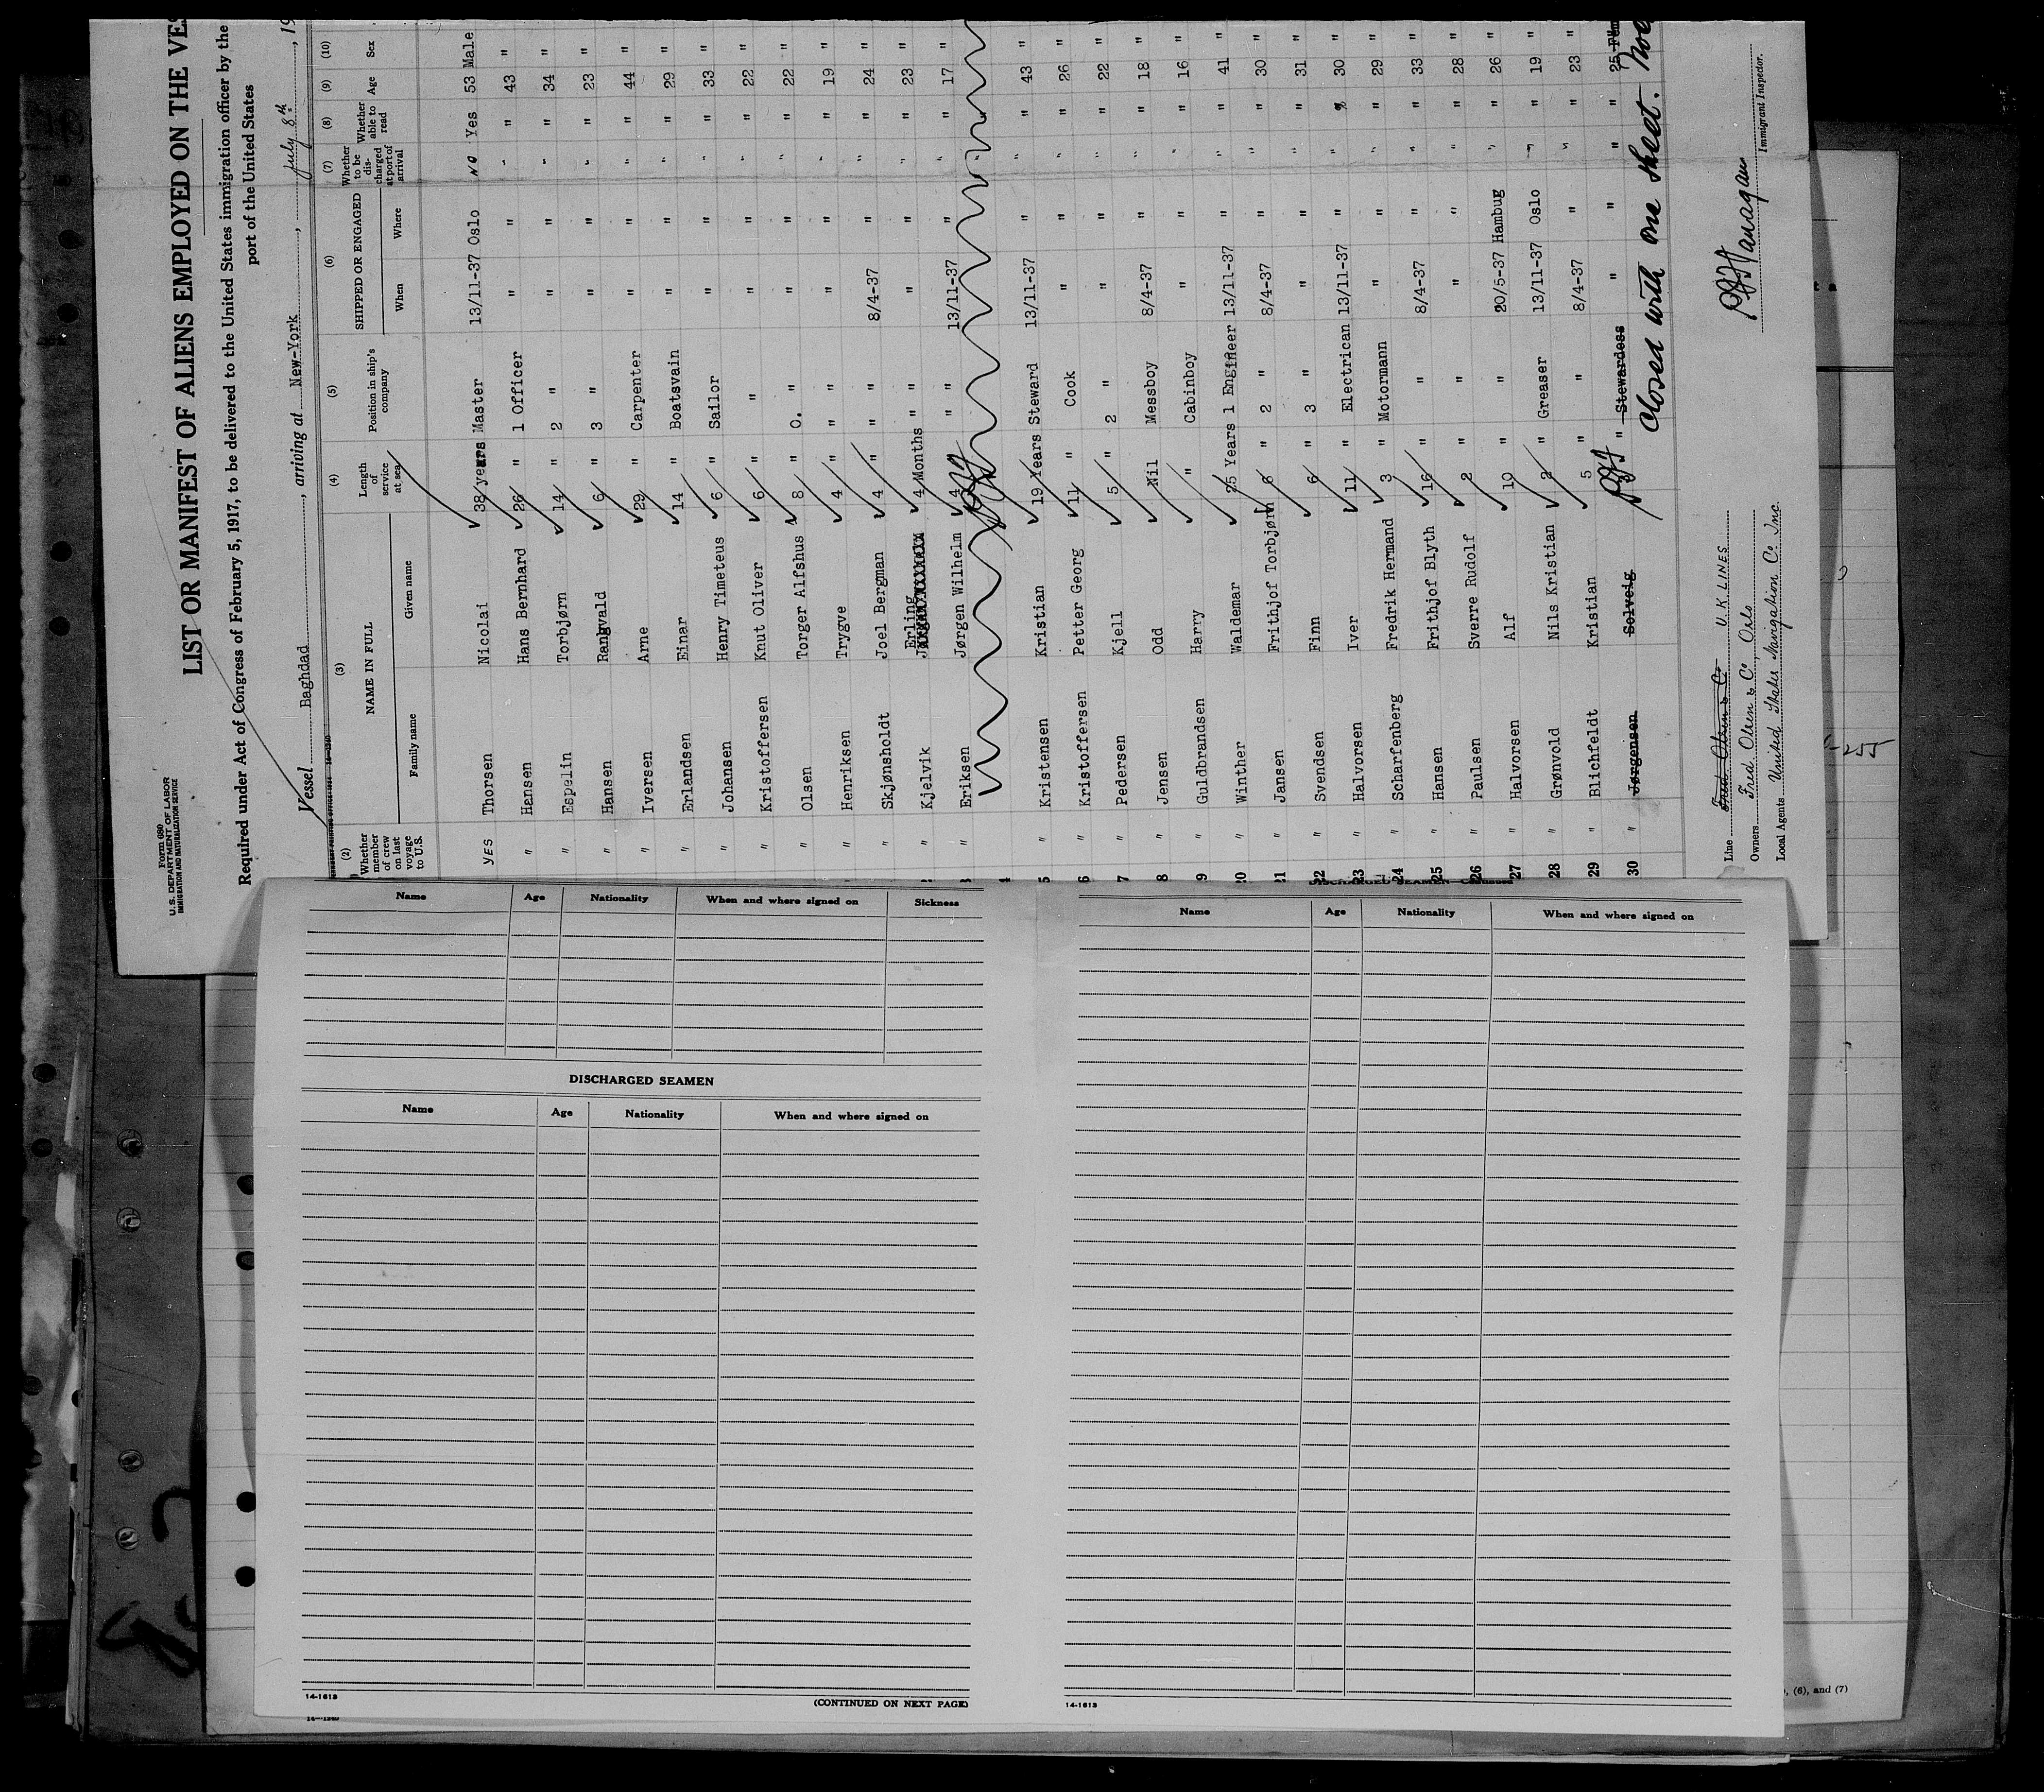 Form 680
U. S. DEPARTMENT OF LABOR
IMMIGRATION AND NATURALIZATION SERVICE
LIST OR MANIFEST OF ALIENS EMPLOYED ON THE VES
Required under Act of Congress of February 5, 1917, to be delivered to the United States immigration officer by the
port of the United States
Vessel Baghdad, arriving at New-York, July 8th, 19
(2) Whether member of crew on last voyage to U.S. (3) NAME IN FULL Family name Given name (4) Length of service at sea (5) Position in ship's company (6) SHIPPED OR ENGAGED When Where (7) Whether to be discharged at port of arrival (8) Whether able to read (9) Age (10) Sex
YES Thorsen Nicolai 38 years Master 13/11-37 Oslo NO Yes 53 Male
" Hansen Hans Bernhard 26 " 1 Officer " " " " 43 "
" Espelin Torbjørn 14 " 2 " " " " " 34 "
" Hansen Rangvald 6 " 3 " " " " " 23 "
" Iversen Arne 29 " Carpenter " " " " 44 "
" Erlandsen Einar 14 " Boatsvain " " " " 29 "
" Johansen Henry Timeteus 6 " Sailor " " " " 33 "
" Kristoffersen Knut Oliver 6 " " " " " " 22 "
" Olsen Torger Alfshus 8 " O. " " " " " 22 "
" Henriksen Trygve 4 " " " " " " " 19 "
" Skjønsholdt Joel Bergman 4 " " " 8/4-37 " " " 24 "
" Kjelvik Erling 4 Months " " " " " " 23 "
" Eriksen Jørgen Wilhelm 4 " " " 13/11-37 " " " 17 "
4
5 " Kristensen Kristian 19 Years Steward 13/11-37 " " " 43 "
6 " Kristoffersen Petter Georg 11 " Cook " " " " 26 "
7 " Pedersen Kjell 5 " 2 " " " " " 22 "
8 " Jensen Odd Nil Messboy 8/4-37 " " " 18 "
9 " Guldbrandsen Harry " Cabinboy " " " " 16 "
20 " Winther Waldemar 25 Years 1 Engineer 13/11-37 " " " 41 "
21 " Jansen Frithjof Torbjørn 6 " 2 " 8/4-37 " " " 30 "
22 " Svendsen Finn 6 " 3 " " " " " 31 "
23 " Halvorsen Iver 11 " Electrican 13/11-37 " " " 30 "
24 " Scharfenberg Fredrik Hermand 3 " Motormann " " " " 29 "
25 " Hansen Frithjof Blyth 16 " " 8/4-37 " " " 33 "
26 " Paulsen Sverre Rudolf 2 " " " " " " 28 "
27 " Halvorsen Alf 10 " " 20/5-37 Hambug " " 26 "
28 " Grønvold Nils Kristian 2 " Greaser 13/11-37 Oslo " " 19 "
29 " Blichfeldt Kristian 5 " " 8/4-37 " " " 23 "
30 " Jørgensen Solveig " Stewardess " " " " 25 Fem
Closed with one sheet.
Line Fred Olsen & Co U.K. LINES
Owners Fred Olsen & Co, Oslo
Local Agents United States Navigation Co Inc.
Immigrant Inspector.
-255
Name Age Nationality When and where signed on Sickness
DISCHARGED SEAMEN
Name Age Nationality When and where signed on
14-1613
(CONTINUED ON NEXT PAGE)
14-1240
DISCHARGED SEAMEN—Continued
Name Age Nationality When and where signed on
14-1613
, (6), and (7)